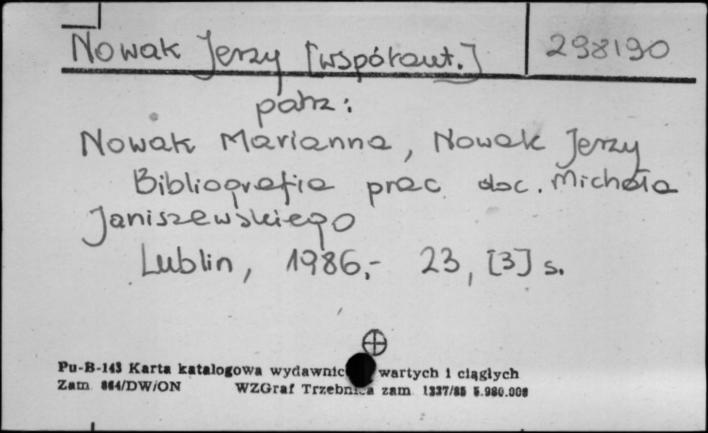 Nowak Jerzy [współaut.] 298190
patrz:
Nowak Marianna, Nowak Jerzy
Bibliografia prac doc. Michała
Janiszewskiego
Lublin, 1986,- 23, [3] s.
Pu-B-143 Karta katalogowa wydawnic wartych i ciągłych
Zam. 864/DW/ON WZGraf Trzebnica zam. 1337/85 5.980.000